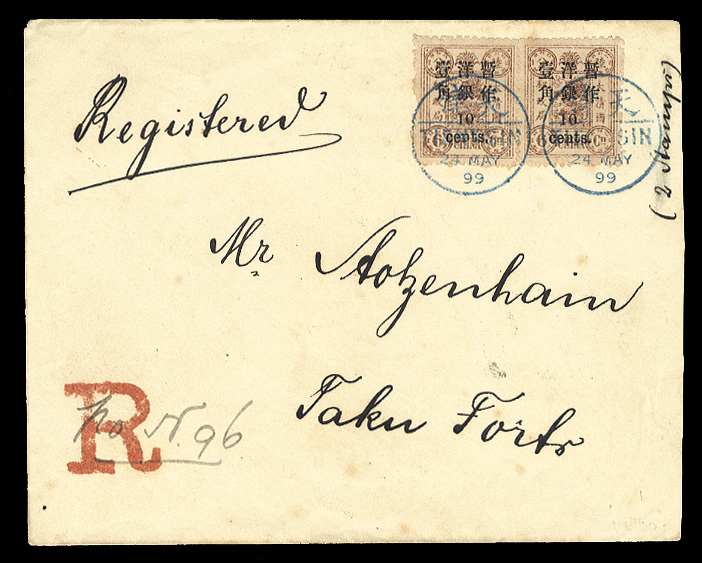 Registered
暫作洋銀壹角
10
cents.
暫作洋銀壹角
10
cents.
TIENTSIN
24 MAY
99
24 MAY
99
(only 2 stamps)
Mr. Stolzenhain
Taku Forts
R
No N. 96